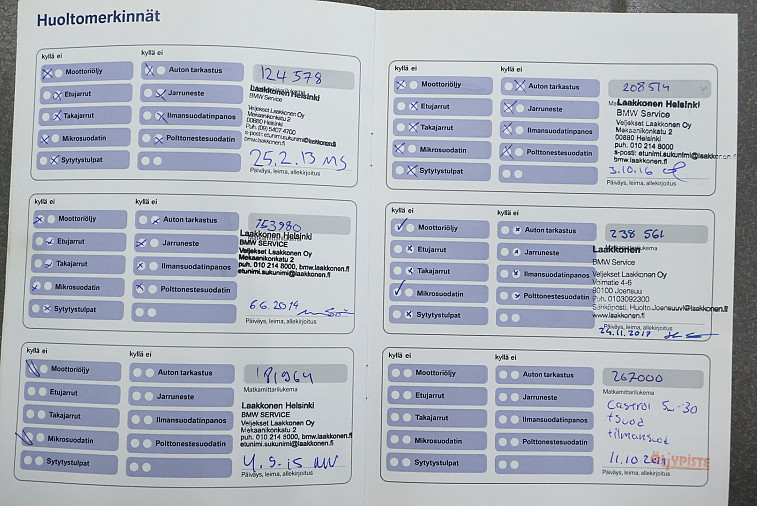 Huoltomerkinnät
kyllä ei
kyllä ei
Moottoriöljy
Auton tarkastus
124 578
Etujarrut
Jarruneste
Takajarrut
Ilmansuodatinpanos
Mikrosuodatin
Polttonestesuodatin
Sytytystulpat
Laakkonen Helsinki
BMW Service
Veljekset Laakkonen Oy
Mekaanikonkatu 2
00880 Helsinki
Puh. (09) 5407 4700
s-posti: etunimi.sukunimi@laakkonen.fi
bmw.laakkonen.fi
25.2.13 MS
Päiväys, leima, allekirjoitus
kyllä ei
kyllä ei
Moottoriöljy
Auton tarkastus
153980
Etujarrut
Jarruneste
Takajarrut
Ilmansuodatinpanos
Mikrosuodatin
Polttonestesuodatin
Sytytystulpat
Laakkonen Helsinki
BMW SERVICE
Veljekset Laakkonen Oy
Mekaanikonkatu 2
puh. 010 214 8000, bmw.laakkonen.fi
etunimi.sukunimi@laakkonen.fi
6.6.2014
Päiväys, leima, allekirjoitus
kyllä ei
kyllä ei
Moottoriöljy
Auton tarkastus
181964
Matkamittarilukema
Etujarrut
Jarruneste
Takajarrut
Ilmansuodatinpanos
Mikrosuodatin
Polttonestesuodatin
Sytytystulpat
Laakkonen Helsinki
BMW SERVICE
Veljekset Laakkonen Oy
Mekaanikonkatu 2
puh. 010 214 8000, bmw.laakkonen.fi
etunimi.sukunimi@laakkonen.fi
4.9.15
Päiväys, leima, allekirjoitus
kyllä ei
kyllä ei
Moottoriöljy
Auton tarkastus
208514
Etujarrut
Jarruneste
Takajarrut
Ilmansuodatinpanos
Mikrosuodatin
Polttonestesuodatin
Sytytystulpat
Laakkonen Helsinki
BMW Service
Veljekset Laakkonen Oy
Mekaanikonkatu 2
00880 Helsinki
puh. 010 214 8000
s-posti: etunimi.sukunimi@laakkonen.fi
bmw.laakkonen.fi
3.10.16
Päiväys, leima, allekirjoitus
kyllä ei
kyllä ei
Moottoriöljy
Auton tarkastus
238 561
Etujarrut
Jarruneste
Takajarrut
Ilmansuodatinpanos
Mikrosuodatin
Polttonestesuodatin
Sytytystulpat
Laakkonen
BMW Service
Veljekset Laakkonen Oy
Voimatie 4-6
80100 Joensuu
Puh. 0103092300
Sähköposti. Huolto.Joensuuvl@laakkonen.fi
www.laakkonen.fi
24.11.2017
Päiväys, leima, allekirjoitus
kyllä ei
kyllä ei
Moottoriöljy
Auton tarkastus
267000
Matkamittarilukema
Etujarrut
Jarruneste
Takajarrut
Ilmansuodatinpanos
Mikrosuodatin
Polttonestesuodatin
Sytytystulpat
Castrol 5w-30
+suod
+ilmansuod
11.10.2019
ÖLJYPISTE
Päiväys, leima, allekirjoitus